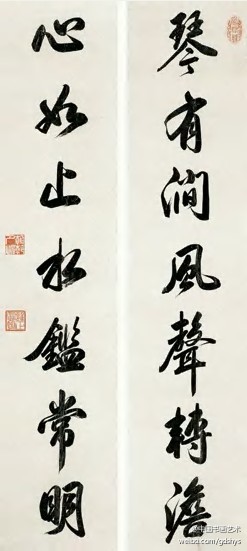 琴有澗風聲轉澹
心如止水鑑常明
@中国书画艺术
weibo.com/gdshys